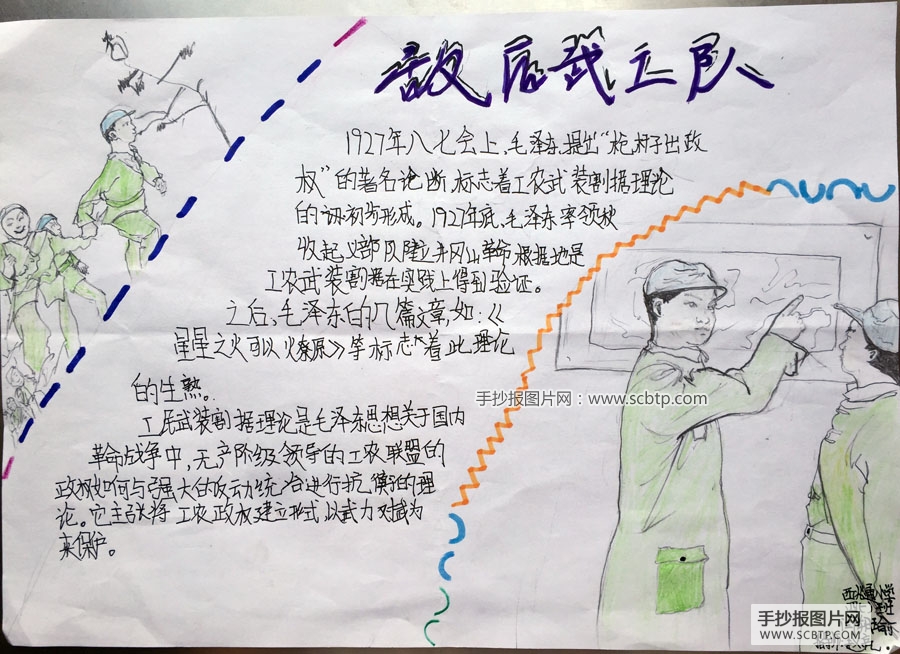 敌后武工队
1927年八七会上、毛泽东提出“枪杆子出政
权”的著名论断标志着工农武装割据理论
的初步形成。1927年底,毛泽东率领秋
收起义部队建立井冈山革命根据地是
工农武装割据在实践上得到验证。
之后,毛泽东的几篇文章,如:《
星星之火可以燎原》等标志着此理论
的生熟。
工农武装割据理论是毛泽东思想关于国内
革命战争中,无产阶级领导的工农联盟的
政权如何与强大的反动统治进行抗衡的理
论。它主张将工农政权建立形式以武力对武为
来保护。
手抄报图片网:www.scbtp.com
手抄报图片网
SCBTP.COM